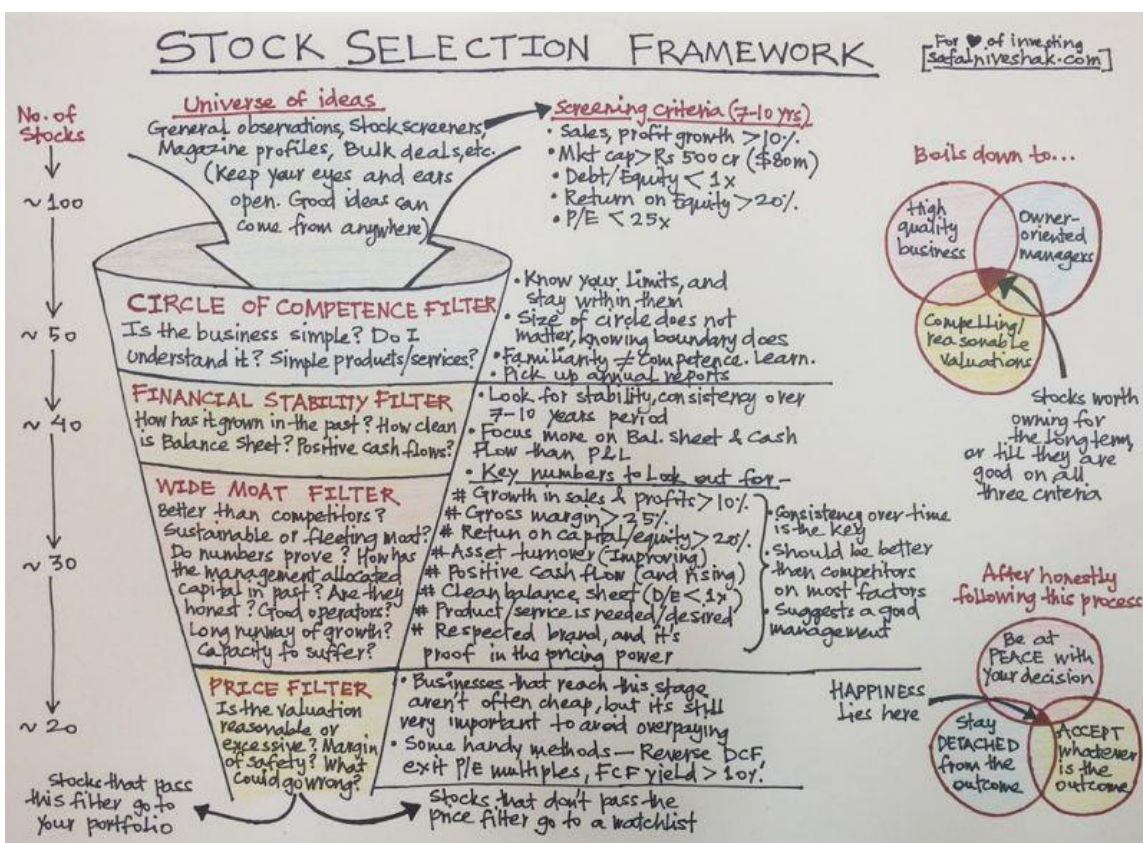 STOCK SELECTION FRAMEWORK
For ♥ of investing
[safalniveshak.com]
No. of
Stocks
~ 100
~ 50
~ 40
~ 30
~ 20
Universe of ideas
General observations, Stock screeners,
Magazine profiles, Bulk deals, etc.
(Keep your eyes and ears
open. Good ideas can
come from anywhere)
Screening criteria (7-10 yrs)
• Sales, profit growth >10%.
• Mkt cap > Rs 500 cr ($80m)
• Debt/Equity < 1x
• Return on Equity >20%.
• P/E < 25x
CIRCLE OF COMPETENCE FILTER
Is the business simple? Do I
understand it? Simple products/services?
• Know your limits, and
stay within them
• Size of circle does not
matter, knowing boundary does
• Familiarity ≠ Competence. Learn.
• Pick up annual reports
FINANCIAL STABILITY FILTER
How has it grown in the past? How clean
is Balance Sheet? Positive cash flows?
• Look for stability, consistency over
7-10 years period
• Focus more on Bal. sheet & Cash
Flow than P&L
WIDE MOAT FILTER
Better than competitors?
Sustainable or fleeting moat?
Do numbers prove? How has
the management allocated
capital in past? Are they
honest? Good operators?
Long runway of growth?
Capacity to suffer?
• Key numbers to look out for-
# Growth in sales & profits >10%.
# Gross margin > 25%.
# Return on capital/equity >20%.
# Asset turnover (Improving)
# Positive cash flow (and rising)
# Clean balance sheet (D/E < 1x)
# Product/service is needed/desired
# Respected brand, and it's
proof in the pricing power
• Consistency over time
is the key
• Should be better
than competitors
on most factors
• Suggests a good
management
PRICE FILTER
Is the valuation
reasonable or
excessive? Margin
of safety? What
could go wrong?
• Businesses that reach this stage
aren't often cheap, but it's still
very important to avoid overpaying
• Some handy methods — Reverse DCF,
exit P/E multiples, FCF yield > 10%.
Stocks that pass
this filter go to
your portfolio
Stocks that don't pass the
price filter go to a watchlist
Boils down to...
High
quality
business
Owner-
oriented
managers
Compelling/
reasonable
valuations
Stocks worth
owning for
the long term,
or till they are
good on all
three criteria
After honestly
following this process
Be at
PEACE with
your decision
HAPPINESS
lies here
Stay
DETACHED
from the
outcome
ACCEPT
whatever
is the
outcome